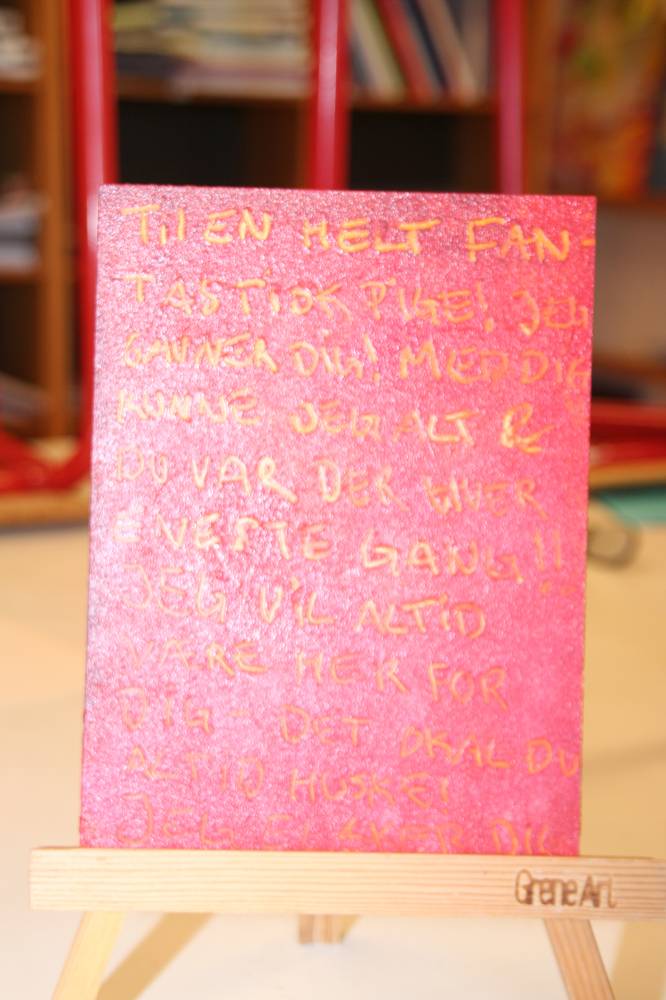 TIL EN HELT FAN-
TASTISK PIGE! JEG
SAVNER DIG! MED DIG
KUNNE JEG ALT &
DU VAR DER HVER
ENESTE GANG!!
JEG VIL ALTID
VÆRE HER FOR
DIG - DET SKAL DU
ALTID HUSKE!
JEG ELSKER DIG
Grene Art